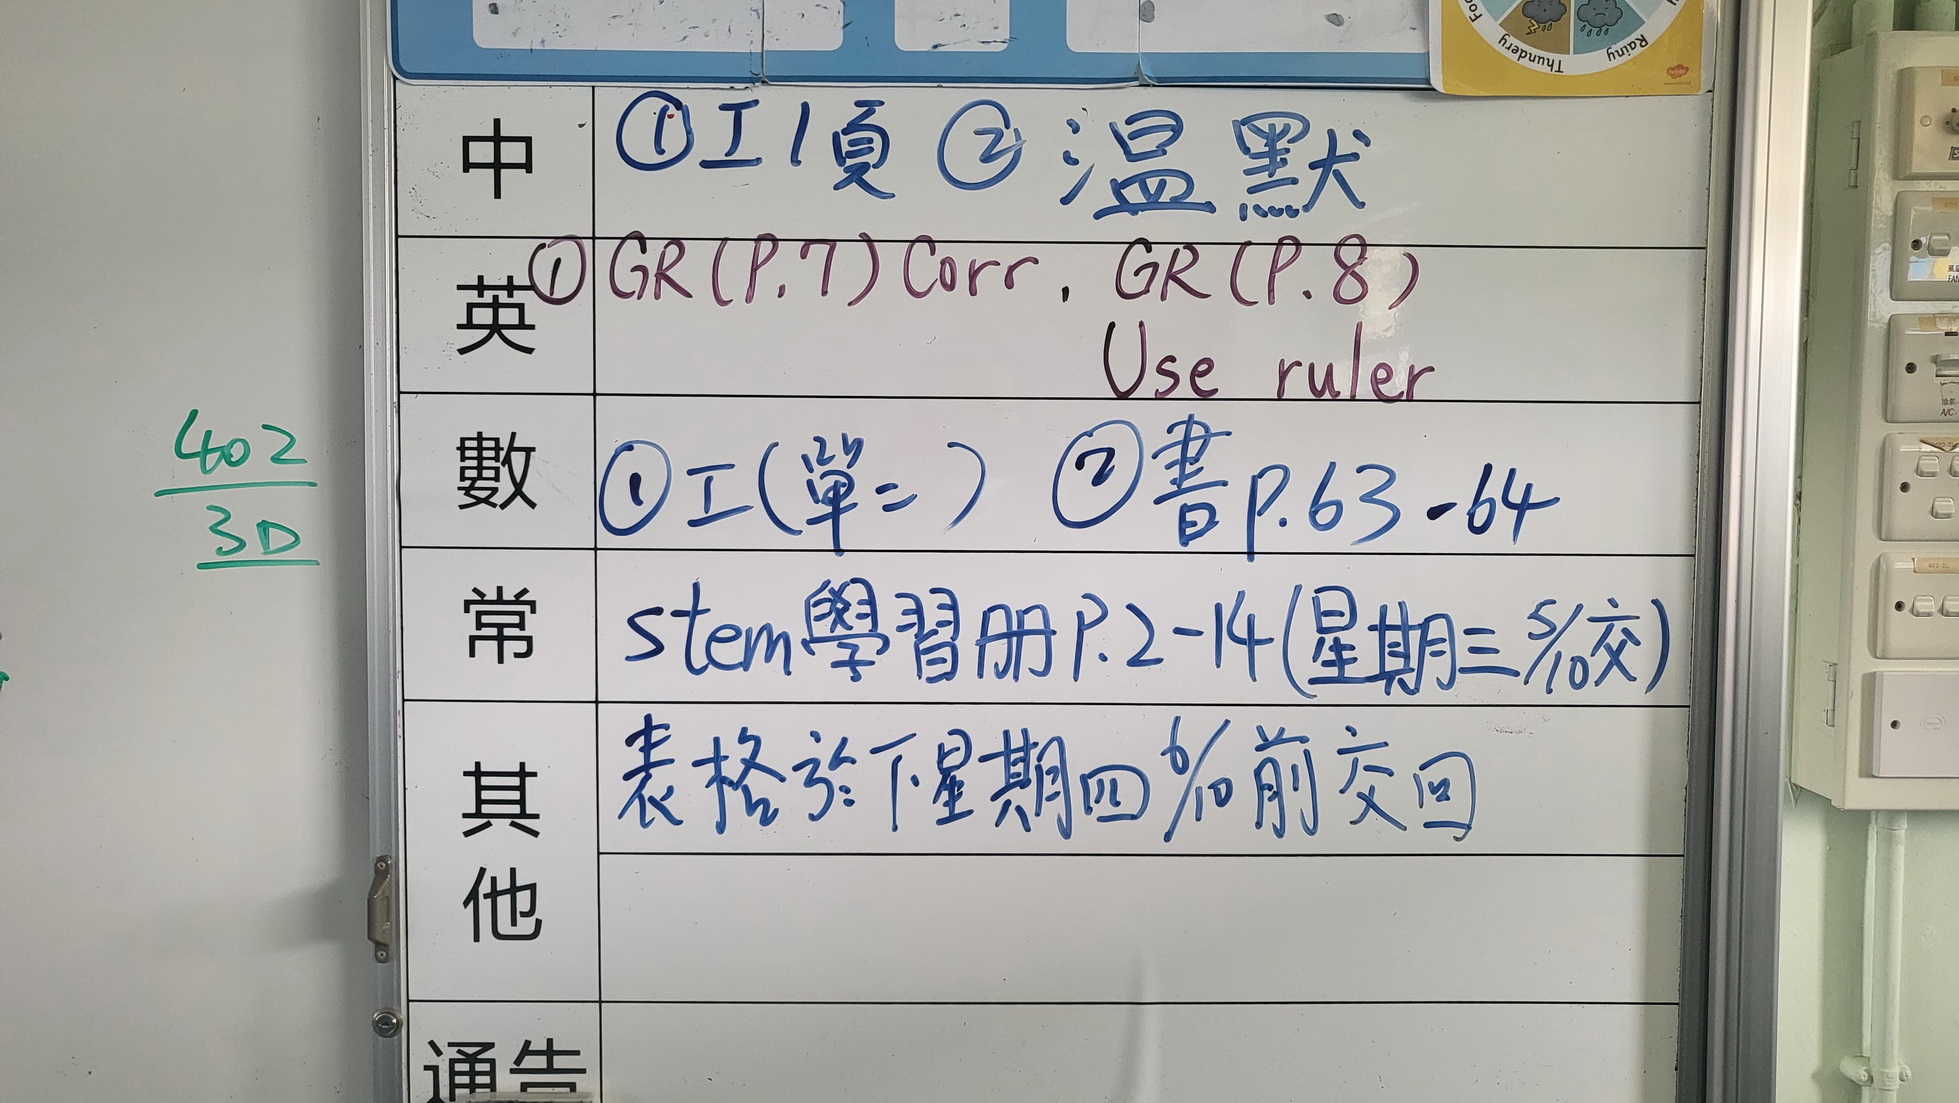 Thundery
Rainy
中 ①工1頁 ②溫默
英 ①GR(P.7) Corr. GR(P.8)
Use ruler
數 ①工(單二) ②書P.63-64
常 stem學習册P.2-14(星期三5/10交)
其他 表格於下星期四6/10前交回
通告
402
3D